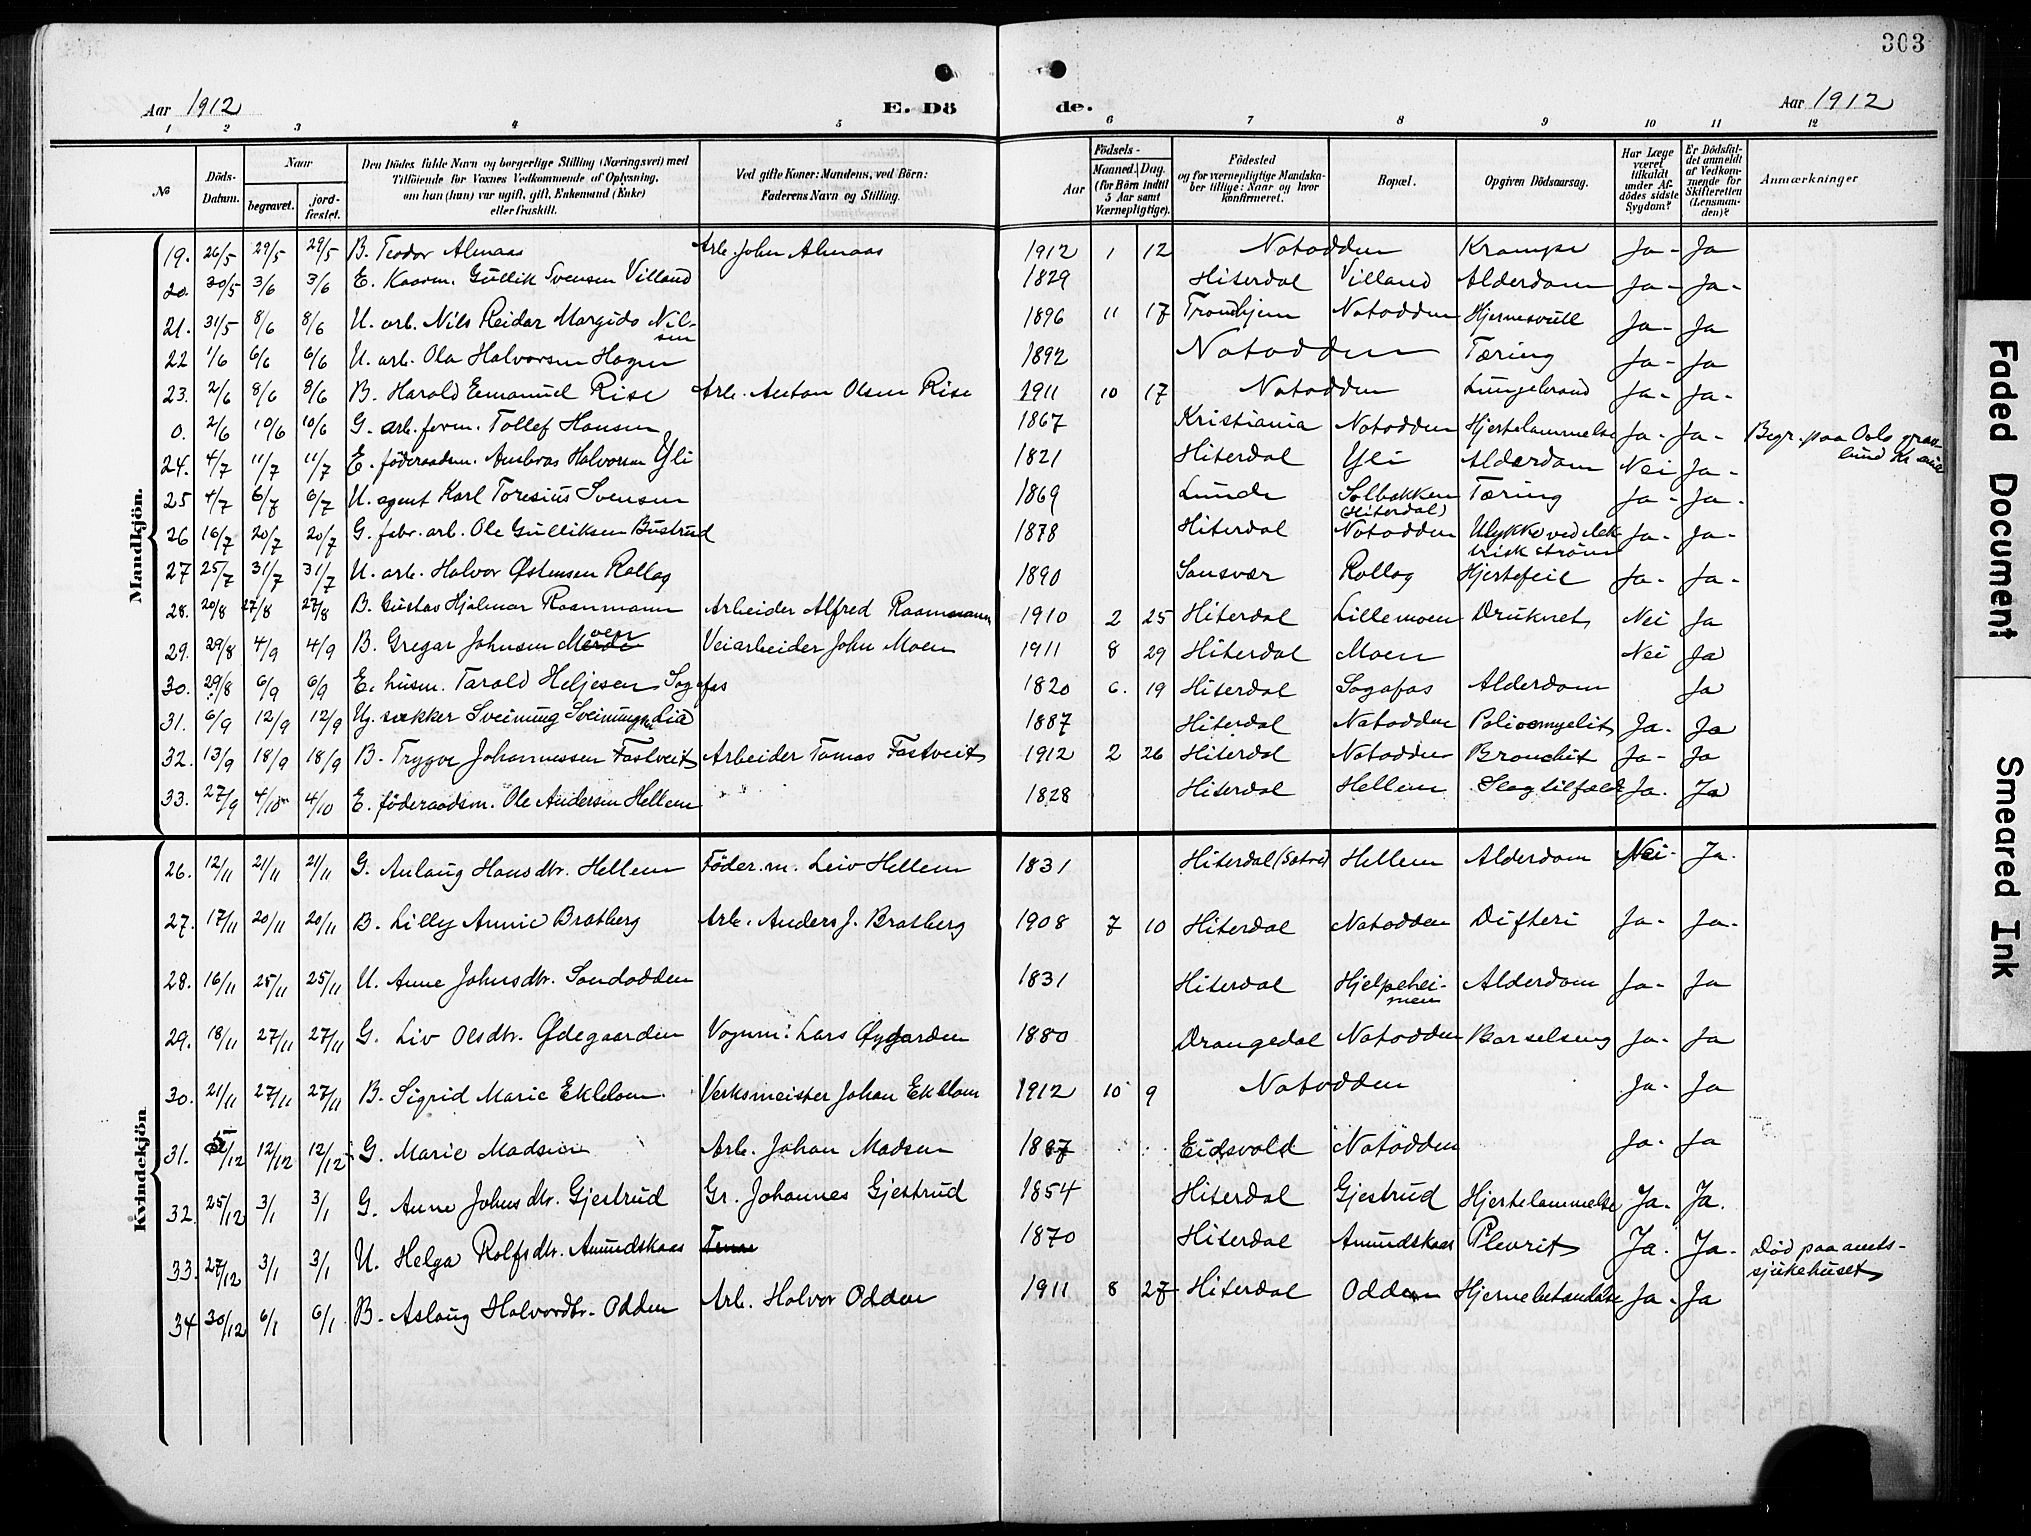 303
Aar 1912 E. Dö de. Aar 1912
1 2 3 4 5 6 7 8 9 10 11 12
№ Döds-Datum. Naar begravet. jord-fæstet. Den Dödes fulde Navn og borgerlige Stilling (Næringsvei) med Tilföiende for Voxnes Vedkommende af Oplysning, om han (hun) var ugift, gift, Enkemand (Enke) eller fraskilt. Ved gifte Koner: Mandens, ved Börn: Faderens Navn og Stilling. Aar Födsels- Maaned. Dag. (for Börn indtil 5 Aar samt Værnepligtige). Födested og for værnepligtige Mandskaber tillige: Naar og hvor konfirmeret. Bopæl. Opgiven Dödsaarsag. Har Læge været tilkaldt under Afdödes sidste Sygdom? Er Dödsfaldet anmeldt af Vedkommende for Skifteretten (Lensmanden)? Anmærkninger
Mandkjön.
19. 26/5 29/5 29/5 B. Teodor Almaas Arb. John Almaas 1912 1 12 Notodden Krampe Ja - Ja
20. 30/5 3/6 3/6 E. Kaarm. Gullik Svensen Villand 1829 Hiterdal Villand Alderdom Ja - Ja -
21. 31/5 8/6 8/6 U. arb. Nils Reidar Margido Nilsen 1896 11 17 Trondhjem Notodden Hjernesvull Ja - Ja
22 1/6 6/6 6/6 U. arb. Ola Halvorsen Hagen 1892 Notodden Tæring Ja - Ja
23. 2/6 8/6 8/6 B. Harald Emanuel Rise Arb. Anton Olsen Rise 1911 10 17 Notodden Lungebrand Ja - Ja -
0. 2/6 10/6 10/6 G. arb. form. Tollef Hansen 1867 Kristiania Notodden Hjertelammelse Ja - Ja - Begr. paa Oslo gravlund Kr.ania
24. 4/7 11/7 11/7 E. föderaadsm. Ambros Halvorsen Yli 1821 Hiterdal Yli Alderdom Nei Ja -
25 4/7 6/7 6/7 U. agent Karl Toresius Svensen 1869 Lunde Solbakken (Hiterdal) Tæring Ja - Ja -
26 16/7 20/7 20/7 G. fabr. arb. Ole Gulliksen Bustrud 1878 Hiterdal Notodden Ulykke ved elektrisk ström Ja - Ja -
27 25/7 31/7 31/7 U. arb. Halvor Østensen Rollag 1890 Sansvær Rollag Hjertefeil Ja - Ja -
28. 20/8 27/8 27/8 B. Gustav Hjalmar Raanmann Arbeider Alfred Raanmann 1910 2 25 Hiterdal Lillemoen Druknet Nei Ja
29. 29/8 4/9 4/9 B. Gregar Johnsen Moen Veiarbeider John Moen 1911 8 29 Hiterdal Moen Nei Ja
30. 29/8 6/9 6/9 E. husm. Tarald Heljesen Sagafos 1820 6. 19 Hiterdal Sagafos Alderdom Ja
31. 6/9 12/9 12/9 Ug. snekker Sveinung Sveinungsen Lia 1887 Hiterdal Notodden Poliomyelit Ja. Ja
32. 13/9 18/9 18/9 B. Trygve Johannessen Fastveit Arbeider Tomas Fastveit 1912 2 26 Hiterdal Notodden Bronchit Ja - Ja
33. 27/9 4/10 4/10 E. föderaadsm. Ole Andersen Hellem 1828 Hiterdal Hellem Slagtilfælde Ja. Ja
Kvindekjön
26. 12/11 21/11 21/11 G. Anlaug Hansdtr. Hellem Föder.m. Leiv Hellem 1831 Hiterdal Hellem Alderdom Nei - Ja.
27. 17/11 20/11 20/11 B. Lilly Annie Bratberg Arb. Anders J. Bratberg 1908 7 10 Hiterdal Notodden Difteri Ja - Ja -
28. 16/11 25/11 25/11 U. Anne Johnsdtr. Sandodden 1831 Hiterdal Hjelpeheimen Alderdom Ja - Ja
29. 18/11 27/11 27/11 G. Liv Olsdtr. Ødegaarden Vognm: Lars Øygarden 1880 Drangedal Notodden Barselseng Ja - Ja
30. 21/11 27/11 27/11 B. Sigrid Marie Ekblom. Verksmeister Johan Ekblom 1912 10 9 Notodden Ja - Ja
31. 5/12 12/12 12/12 G. Marie Madsen Arb. Johan Madsen 1887 Eidsvold Notodden Ja - Ja
32. 25/12 3/1 3/1 G. Anne Johnsdtr. Gjestrud Gr. Johannes Gjestrud 1854 Hiterdal Gjestrud Hjertelammelse Ja - Ja.
33. 27/12 3/1 3/1 U. Helga Rolfsdtr. Amundskaas 1870 Hiterdal Amundskaas Plevrit Ja - Ja - Död paa amtssjukehuset
34 30/12 6/1 6/1 B. Aslaug Halvordtr. Odden Arb. Halvor Odden 1911 8 27 Hiterdal Odden Hjernebetændelse Ja - Ja
Faded Document
Smeared Ink